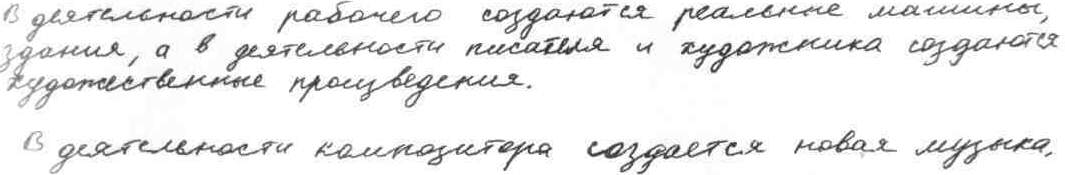 В деятельности рабочего создаются реальные машины,
здания, а в деятельности писателя и художника создаются
художественные произведения.
В деятельности композитора создается новая музыка.